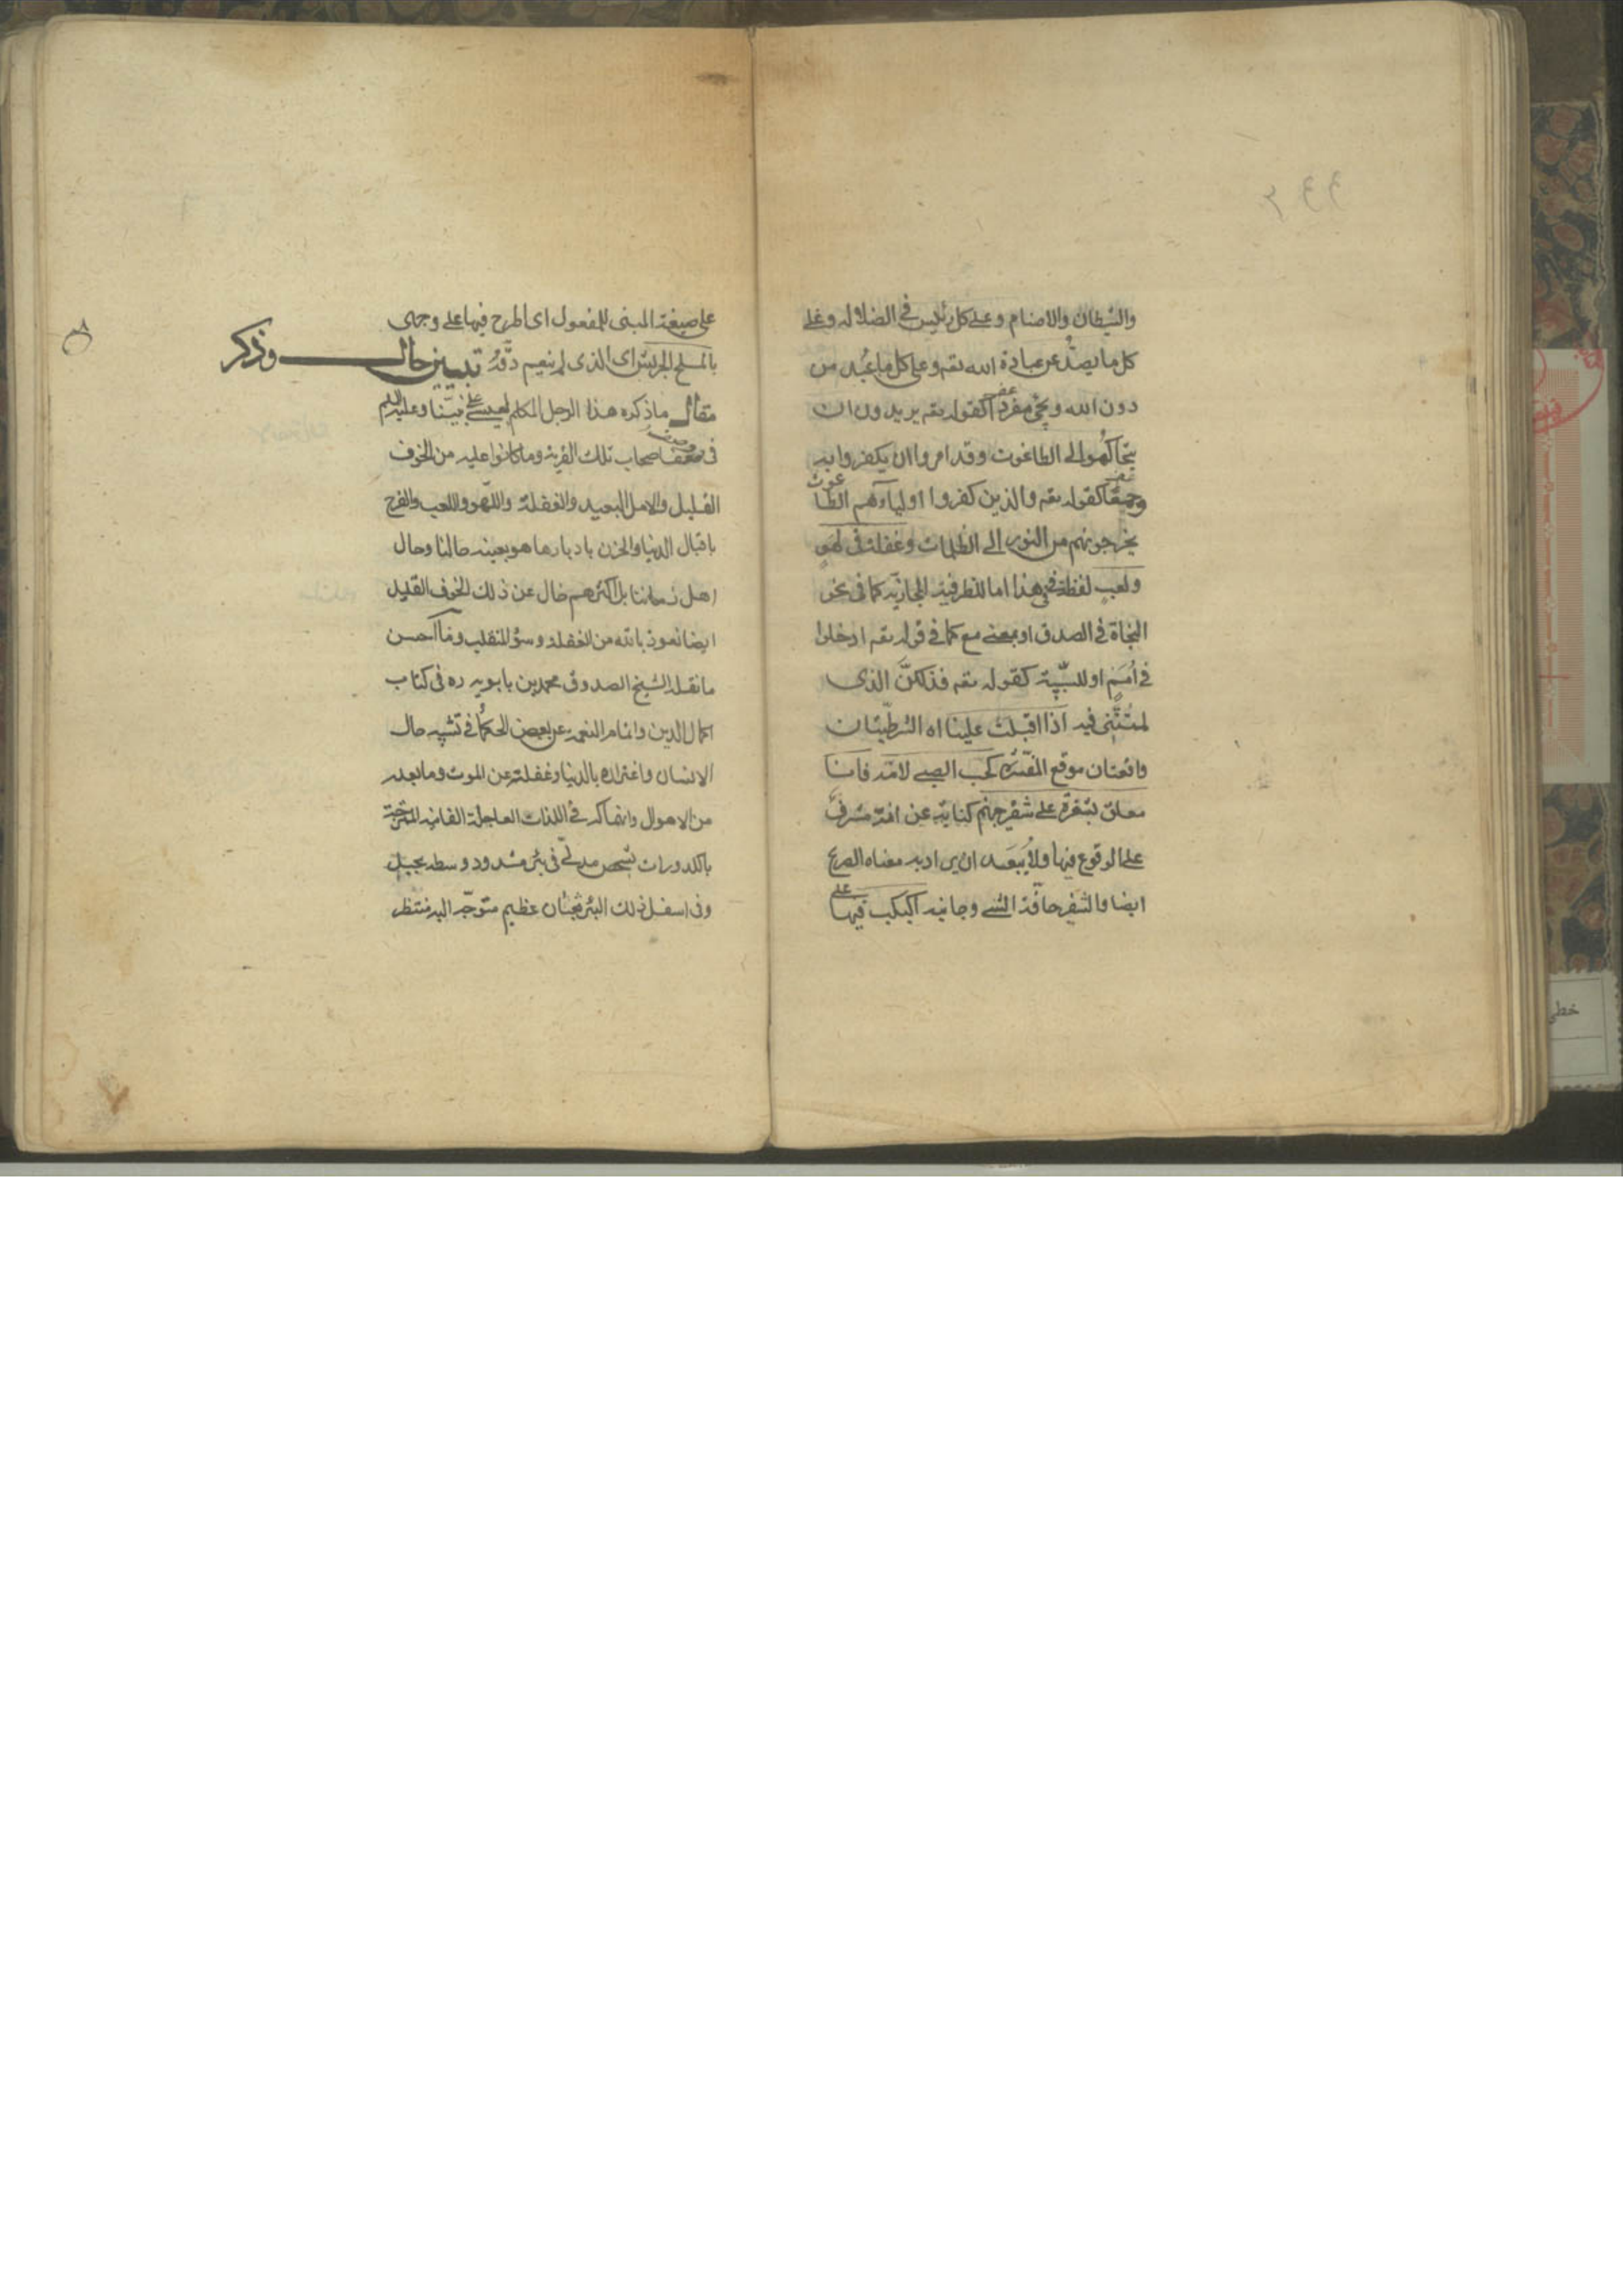 والشيطان والاصنام وعلى كل رئيس في الضلالة وعلى
كل ما يصد عن عبادة الله تعه وعلى كل ما عُبد من
دون الله ويجئ مفردا كقوله تعه يريدون ان
يتحاكموا الى الطاغوت وقد امروا ان يكفروا به
وجمعا كقوله تعه والذين كفروا اولياءهم الطاغوت
يخرجونهم من النور الى الظلمات وغفلة في لهو
ولعب لفظة في هذا اما للظرفية المجازية كما في نحو
النجاة في الصدق او بمعنى مع كما في قوله تعه ادخلوا
في اُمَمٍ او للسببية كقوله تعه فذلكنّ الذى
لمتُنّنِى فيه اذا اقبلت علينا اه الشرطيتان
واقعتان موقع المفسّرة لحب الصبى لامّه فانا
معلق بشعرة على شفير جهنم كناية عن انه مشرف
على الوقوع فيها ولا يبعد ان يراد به معناه الصريح
ايضا والشفير حافة الشئ وجانبه اكبكب فيها
على صيغة المبنى للمفعول اى اطرح فيها على وجهى
بالملح الجريش اى الذى لم ينعم دقّه تبيين حال وذكر
مقال ما ذكره هذا الرجل المكلم لعيسى على نبينا وعليه السلم
في وصف اصحاب تلك القرية وما كانوا عليه من الخوف
القليل والامل البعيد والغفلة واللهو واللعب والفرح
باقبال الدنيا والحزن بادبارها هو بعينه حالنا وحال
اهل زماننا بل اكثرهم خال عن ذلك الخوف القليل
ايضا نعوذ بالله من الغفلة وسؤ المنقلب وما احسن
ما نقله الشيخ الصدوق محمد بن بابويه ره في كتاب
اكمال الدين واتمام النعمه عن بعض الحكماء في تشبيه حال
الانسان واغتراره بالدنيا وغفلته عن الموت وما بعده
من الاهوال وانهماكه في اللذات العاجلة الفانية الممتزجة
بالكدورات بشخص مدلّى في بئر مشدود وسطه بحبل
وفى اسفل ذلك البئر ثعبان عظيم متوجّه اليه منتظر
خطى